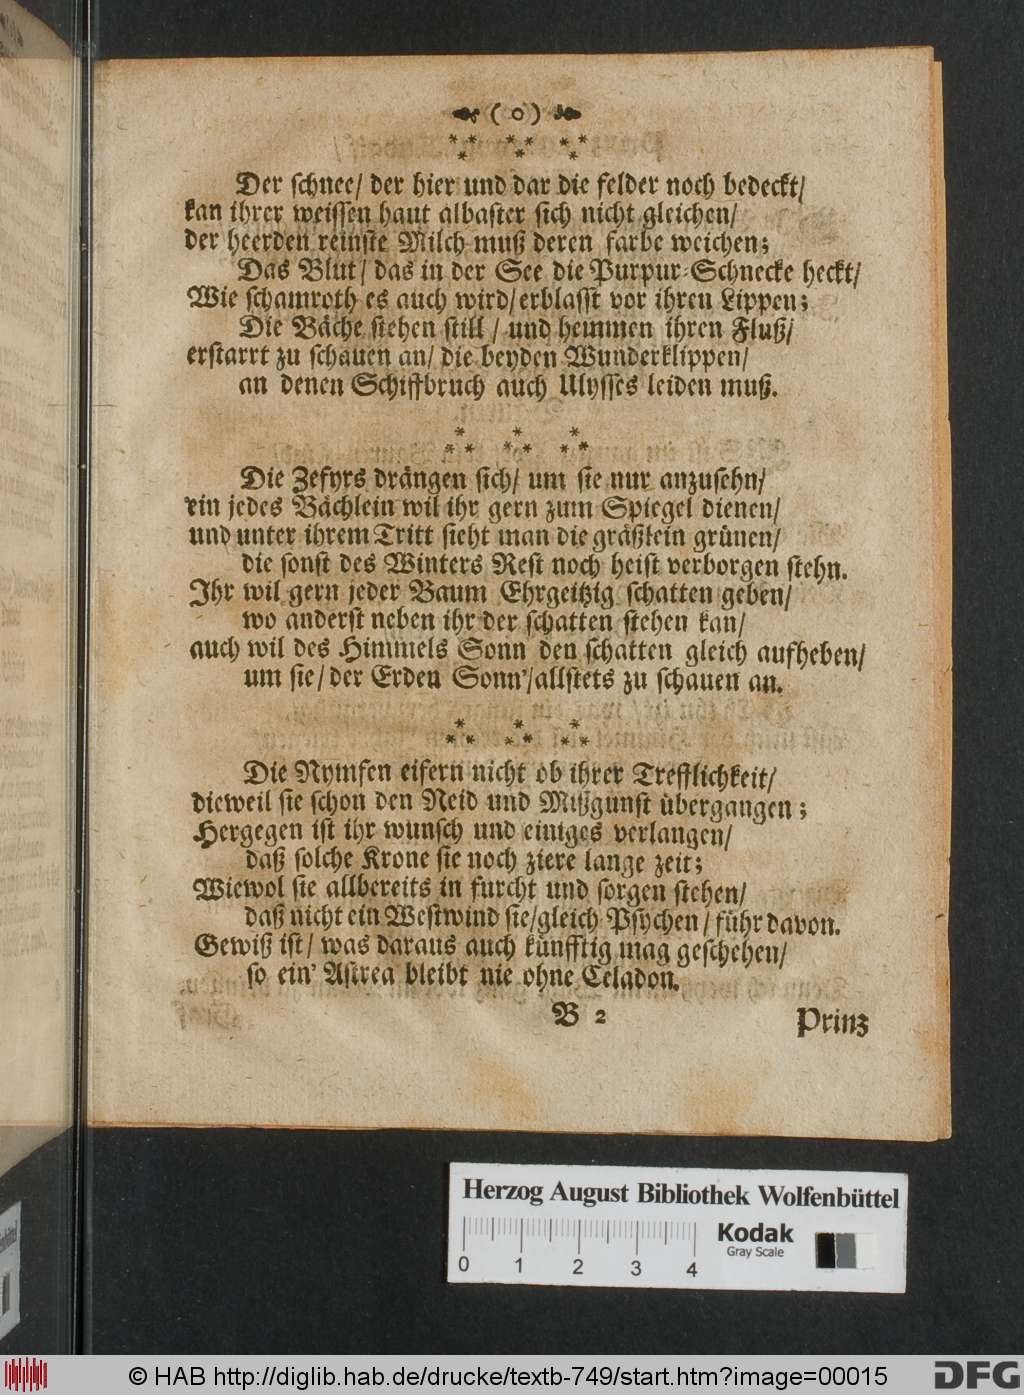 ( o )
* * * * * *
* * *
Der schnee/ der hier und dar die felder noch bedeckt/
kan ihrer weissen haut albaster sich nicht gleichen/
der heerden reinste Milch muß deren farbe weichen;
Das Blut/ das in der See die Purpur-Schnecke heckt/
Wie schamroth es auch wird/ erblasst vor ihren Lippen;
Die Bäche stehen still / und hemmen ihren Fluß/
erstarrt zu schauen an/ die beyden Wunderklippen/
an denen Schiffbruch auch Ulysses leiden muß.
* * *
* * * * * *
Die Zefyrs drängen sich/ um sie nur anzusehn/
ein jedes Bächlein wil ihr gern zum Spiegel dienen/
und unter ihrem Tritt sieht man die gräßlein grünen/
die sonst des Winters Rest noch heist verborgen stehn.
Ihr wil gern jeder Baum Ehrgeitzig schatten geben/
wo anderst neben ihr der schatten stehen kan/
auch wil des Himmels Sonn den schatten gleich aufheben/
um sie/ der Erden Sonn'/ allstets zu schauen an.
* * *
* * * * * *
Die Nymfen eifern nicht ob ihrer Trefflichkeit/
dieweil sie schon den Neid und Mißgunst übergangen;
Hergegen ist ihr wunsch und einiges verlangen/
daß solche Krone sie noch ziere lange zeit;
Wiewol sie allbereits in furcht und sorgen stehen/
daß nicht ein Westwind sie/ gleich Psychen/ führ davon.
Gewiß ist/ was daraus auch künfftig mag geschehen/
so ein' Astrea bleibt nie ohne Celadon.
B 2
Prinz
Herzog August Bibliothek Wolfenbüttel
0 1 2 3 4
Kodak
Gray Scale
© HAB http://diglib.hab.de/drucke/textb-749/start.htm?image=00015
DFG